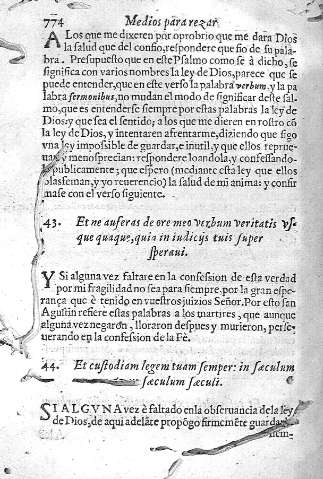 774 Medios para rezar
A Los que me dixeren por oprobrio que me dara Dios
la salud que del confio, respondere que fio de su pala-
bra. Presupuesto que en este Psalmo como se à dicho, se
significa con varios nombres la ley de Dios, parece que se
puede entender, que en este verso la palabra verbum, y la pa
labra sermonibus, no mudan el modo de significar deste sal-
mo, que es entenderse siempre por estas palabras la ley de
Dios: y que sea el sentido; a los que me dieren en rostro cõ
la ley de Dios, y intentaren afrentarme, diziendo que sigo
vna ley imposible de guardar, e inutil, y que ellos reprue-
uan y menosprecian: respondere loandola, y confessando-
publicamente; que espero (mediante esta ley que ellos
blasfeman, y yo reuerencio) la salud de mi anima: y confir
mase con el verso siguiente.
43. Et ne auferas de ore meo verbum veritatis vs-
que quaque, quia in iudicijs tuis super
speraui.
Y Si alguna vez faltare en la confession de esta verdad
por mi fragilidad no sea para siempre. por la gran espe-
rança que è tenido en vuestros juizios Señor. Por esto san
Agustin refiere estas palabras a los martires, que aunque
alguna vez negaron, lloraron despues y murieron, perse-
uerando en la confession de la Fè.
44. Et custodiam legem tuam semper: in sæculum
sæculum sæculi.
SI ALGVNA vez è faltado en la obseruancia de la ley
de Dios, de aqui adelãte propõgo firmemẽte guardar